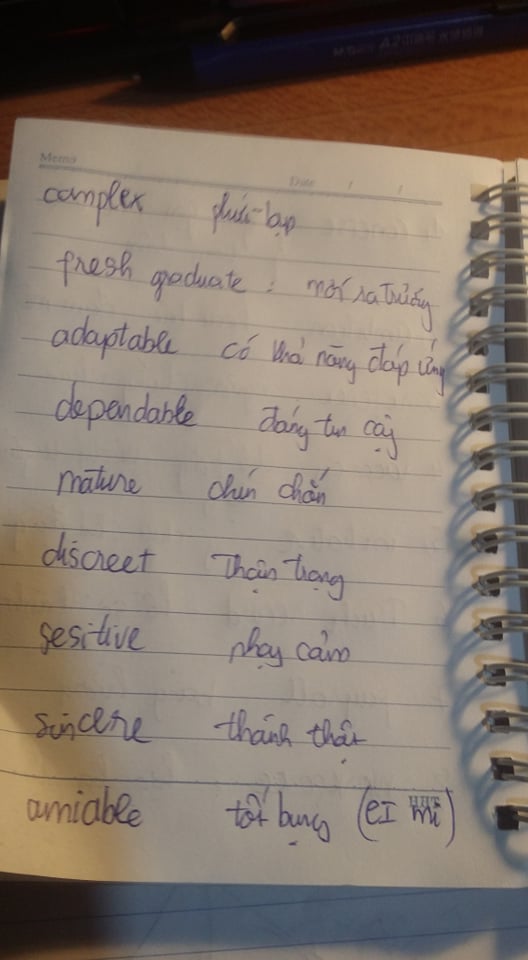 M&G A2
Memo
Date / /
complex phức-tạp
fresh graduate : mới ra trường
adaptable có khả năng đáp ứng
dependable đáng tin cậy
mature chín chắn
discreet Thận trọng
sesitive nhạy cảm
sincere thành thật
amiable tốt bụng (eI mi)